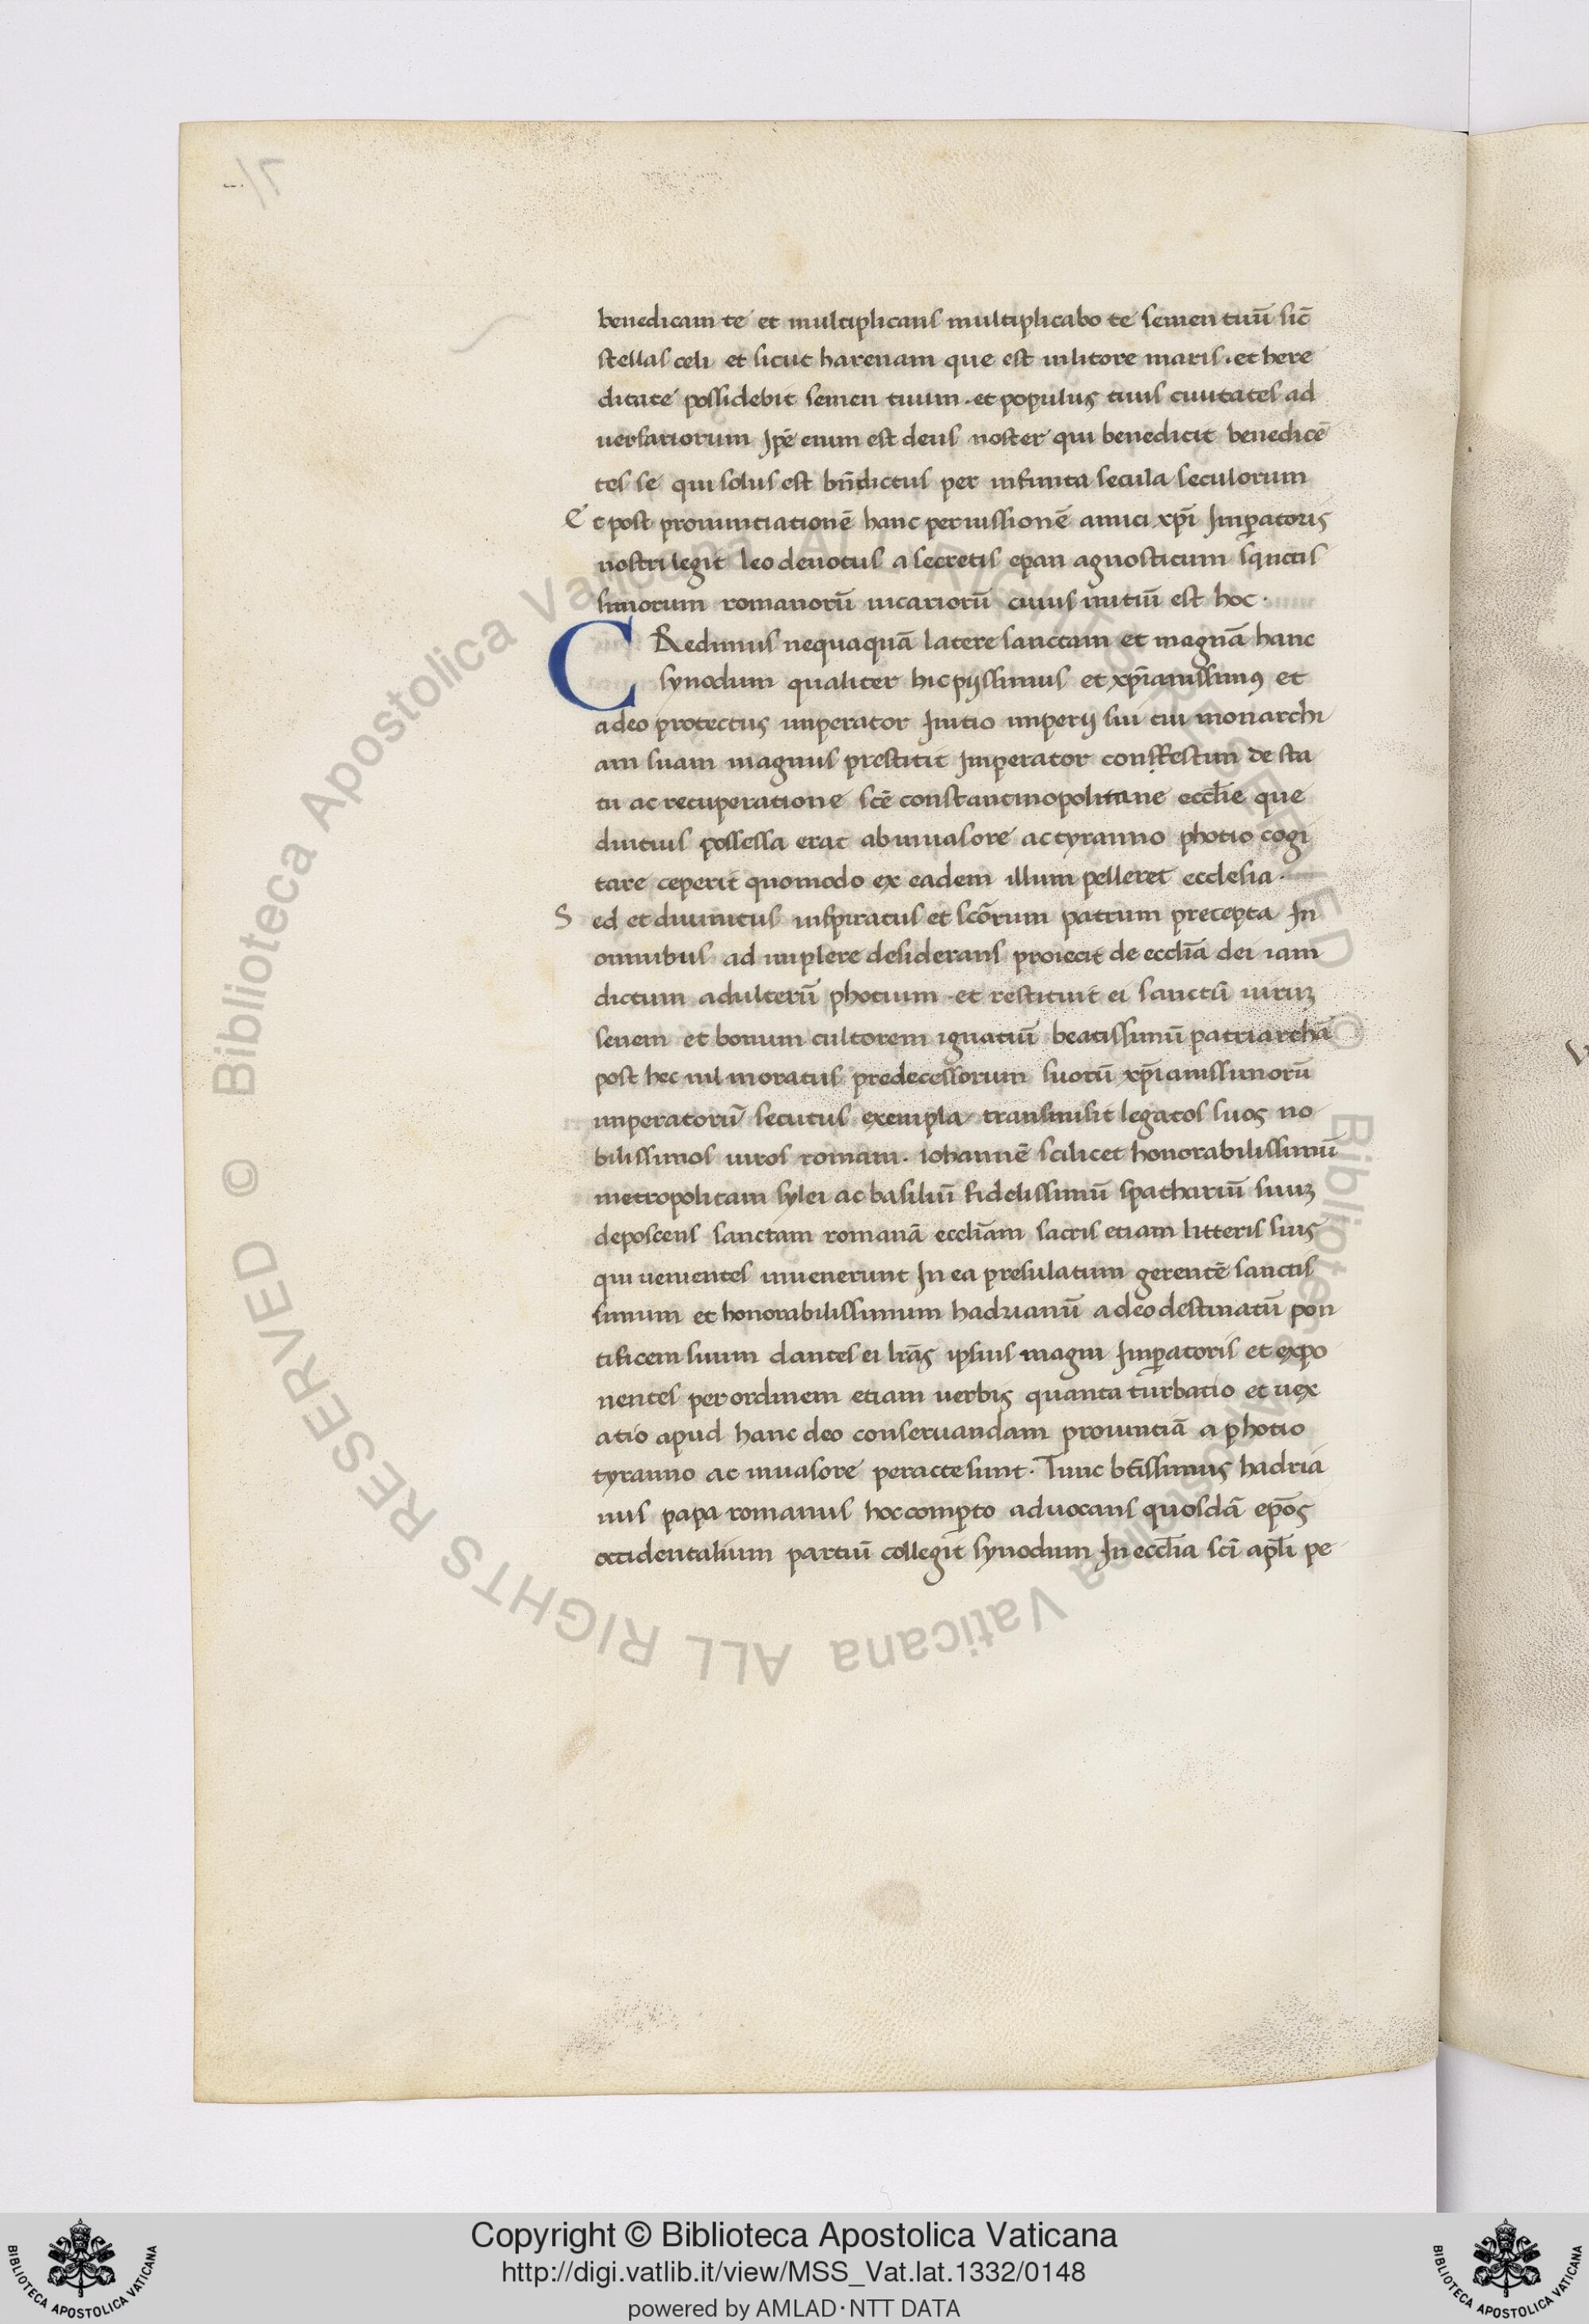 benedicam te et multiplicans multiplicabo te semen tuū sic̄
stellas celi et sicut harenam que est in litore maris . et here
ditate possidebit semen tuum . et populus tuus ciuitates ad
uersariorum Ip̄e enim est deus noster qui benedicit benedicē
tes se qui solus est bn̄dictus per infinita secula seculorum
Et post pronuntiationē hanc permissionē amici xp̄i Imp̄atoris
nostri legit leo deuotus a secretis epan agnosticum sanctis
simorum romanorū uicariorū cuius initiū est hoc .
CRedimus nequaquā latere sanctam et magnā hanc
synodum qualiter hic pijssimus et xp̄ianissimus et
a deo protectus imperator Initio imperij sui cui monarchi
am suam magnus prestitit Imperator confestim de sta
tu ac recuperatione sc̄e constantinopolitane eccl̄ie que
diutius possessa erat ab inuasore ac tyranno photio cogi
tare ceperit quomodo ex eadem illum pelleret ecclesia .
Sed et diuinitus inspiratus et sc̄orum patrum precepta In
omnibus ad implere desiderans proiecit de eccl̄ia dei iam
dictum adulterū photium . et restituit ei sanctū uiruʒ
senem et bonum cultorem ignatiū beatissimū patriarchā
post hec nil moratus predecessorum suorū xp̄ianissimorū
imperatorū secutus exempla transmisit legatos suos no
bilissimos uiros romam . Iohannē scilicet honorabilissimū
metropolitam sylei ac basiliū fidelissimū spathariū suuʒ
deposcens sanctam romanā eccl̄iam sacris etiam litteris suis
qui uenientes inuenerunt In ea presulatum gerentē sanctis
simum et honorabilissimum hadrianū a deo destinatū pon
tificem suum dantes ei lr̄as ipsius magni Imp̄atoris et expo
nentes per ordinem etiam uerbis quanta turbatio et uex
atio apud hanc deo conseruandam prouintiā a photio
tyranno ac inuasore peracte sunt . Tunc bt̄issimus hadria
nus papa romanus hoc comperto aduocans quosdā ep̄os
occidentalium partiū collegit synodum In eccl̄ia sc̄i apl̄i pe
© Biblioteca Apostolica Vaticana ALL RIGHTS RESERVED
© Biblioteca Apostolica Vaticana ALL RIGHTS RESERVED
Copyright © Biblioteca Apostolica Vaticana
http://digi.vatlib.it/view/MSS_Vat.lat.1332/0148
powered by AMLAD·NTT DATA
BIBLIOTECA APOSTOLICA VATICANA
BIBLIOTECA APOSTOLICA VATICANA